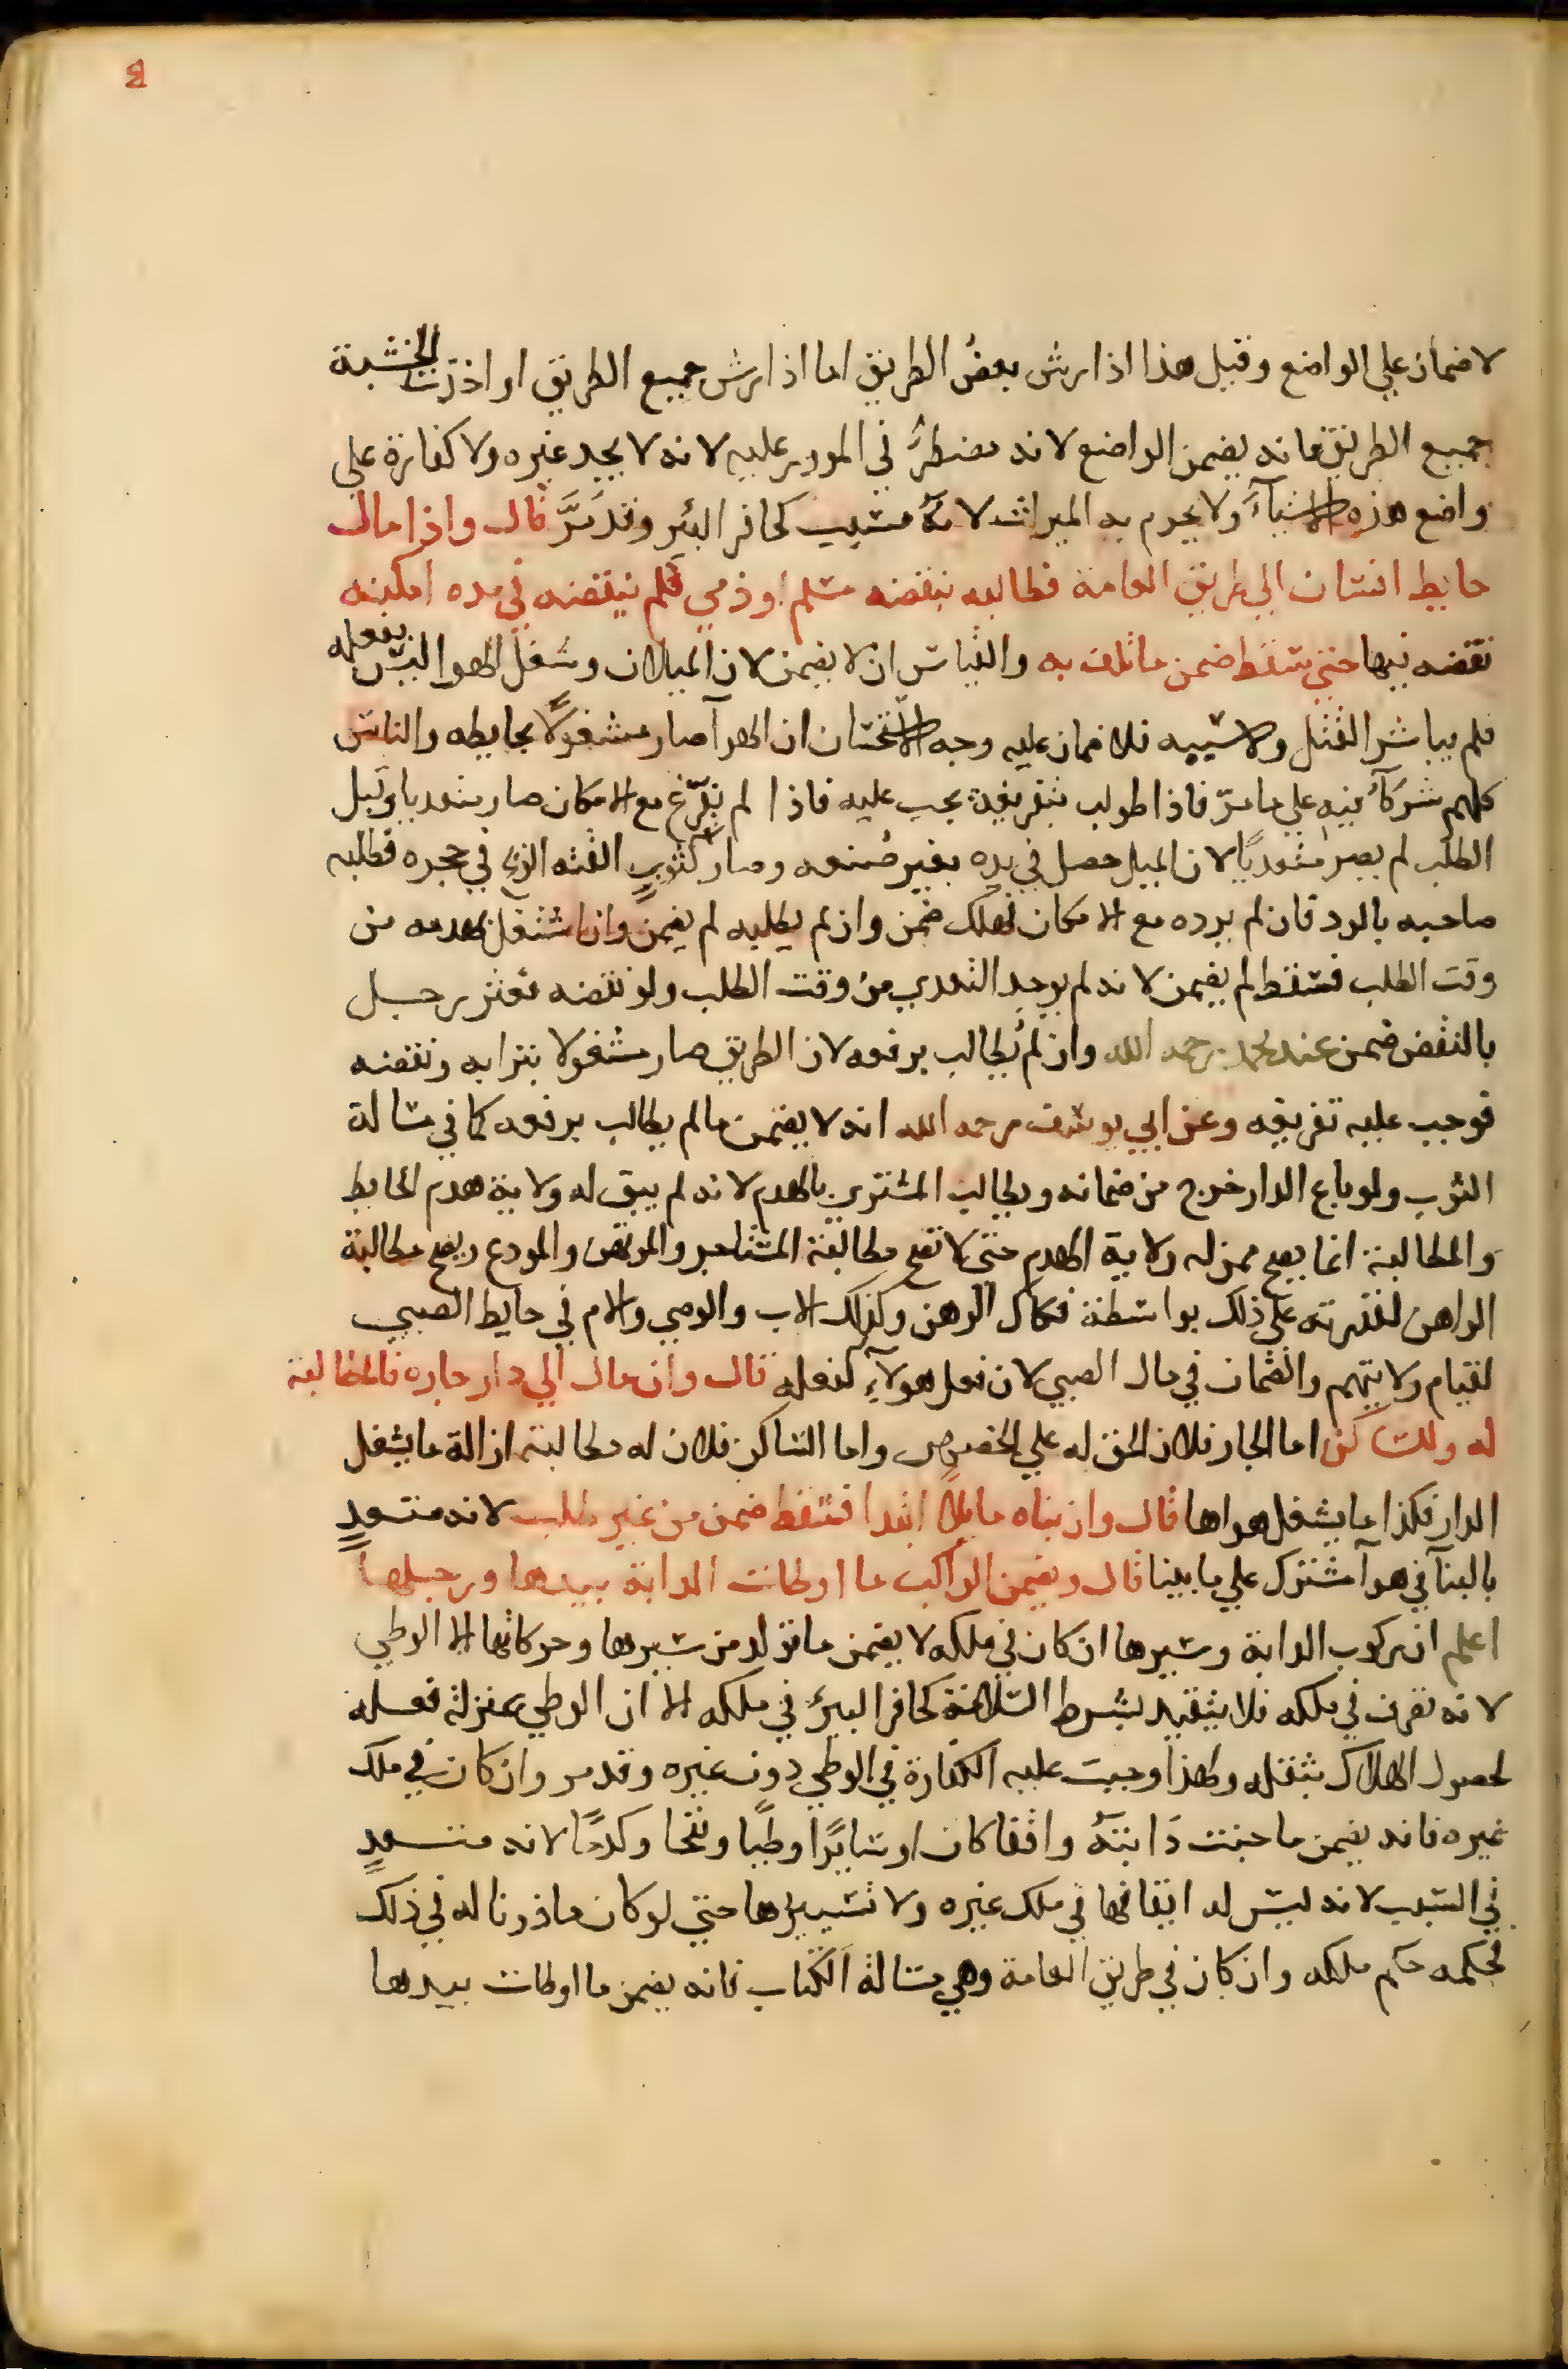 لا ضمان علي الواضع وقيل هذا اذا رش بعض الطريق اما اذا رش جميع الطريق او اخذت الخشبة
جميع الطريق فانه يضمن الواضع لانه مضطر في المرور عليه لانه لا يجد غيره ولا كفارة علي
واضع هذه الاشياء ولا يحرم به الميراث لانه مسبب كحافر البئر وقد مر قال واذا مال
حايط انسان الي طريق العامة فطالبه بنقضه مسلم او ذمي فلم ينقضه في مده امكنه
نقضه فيها حتي سقط ضمن ما تلف به والقياس ان لا يضمن لان الميلان وشغل الهوا ليس بفعله
فلم يباشر القتل ولا سببه فلا ضمان عليه وجه الاستحسان ان الهوآ صار مشغولا بحايطه والناس
كلهم شركآء فيه علي ما مر فاذا طولب بتفريغه يجب عليه فاذا لم يفرغ مع الامكان صار متعديا وقبل
الطلب لم يصر متعديا لان الميل حصل في يده بغير صنعه وصار كثوب القته الريح في حجره فطلبه
صاحبه بالرد فان لم يرده مع الامكان فهلك ضمن وان لم يطلبه لم يضمن وان اشتغل بهدمه من
وقت الطلب فسقط لم يضمن لانه لم يوجد التعدي من وقت الطلب ولو نقضه فعثر رجل
بالنقض ضمن عند محمد رحمه الله وان لم يطالب برفعه لان الطريق صار مشغولا بترابه ونقضه
فوجب عليه تفريغه وعن ابي يوسف رحمه الله انه لا يضمن ما لم يطالب برفعه كما في مسالة
الثوب ولو باع الدار خرج من ضمانه ويطالب المشتري بالهدم لانه لم يبق له ولاية هدم الحايط
والمطالبة انما يصح ممن له ولاية الهدم حتي لا تصح مطالبة المستاجر والمرتهن والمودع ويصح مطالبة
الراهن لقدرته علي ذلك بواسطة فكاك الرهن وكذلك الاب والوصي والام في حايط الصبي
لقيام ولايتهم والضمان في مال الصبي لان فعل هولآء كفعله قال وان مال الي دار جاره فالمطالبة
له وللساكن اما الجار فلان الحق له علي الخصوص واما الساكن فلان له مطالبته ازالة ما يشغل
الدار فكذا ما يشغل هواها قال وان بناه مايلا ابتدا فسقط ضمن من غير طلب لانه متعد
بالبنآ في هوآ مشترك علي ما بينا قال ويضمن الراكب ما اوطات الدابة بيدها ورجلها
اعلم ان ركوب الدابة وسيرها ان كان في ملكه لا يضمن ما تولد من سيرها وحركاتها الا الوطي
لانه تصرف في ملكه فلا يتقيد بشرط السلامة كحافر البئر في ملكه الا ان الوطي بمنزلة فعله
لحصول الهلاك بثقله ولهذا وجبت عليه الكفارة في الوطي دون غيره وقد مر وان كان في ملك
غيره فانه يضمن ما جنت دابته واقفا كان او سايرا وطيا ونفحا وكدما لانه متعد
في السبب لانه ليس له ايقافها في ملك غيره ولا تسييرها حتي لو كان ماذونا له في ذلك
فحكمه حكم ملكه وان كان في طريق العامة وهي مسالة الكتاب فانه يضمن ما اوطات بيدها